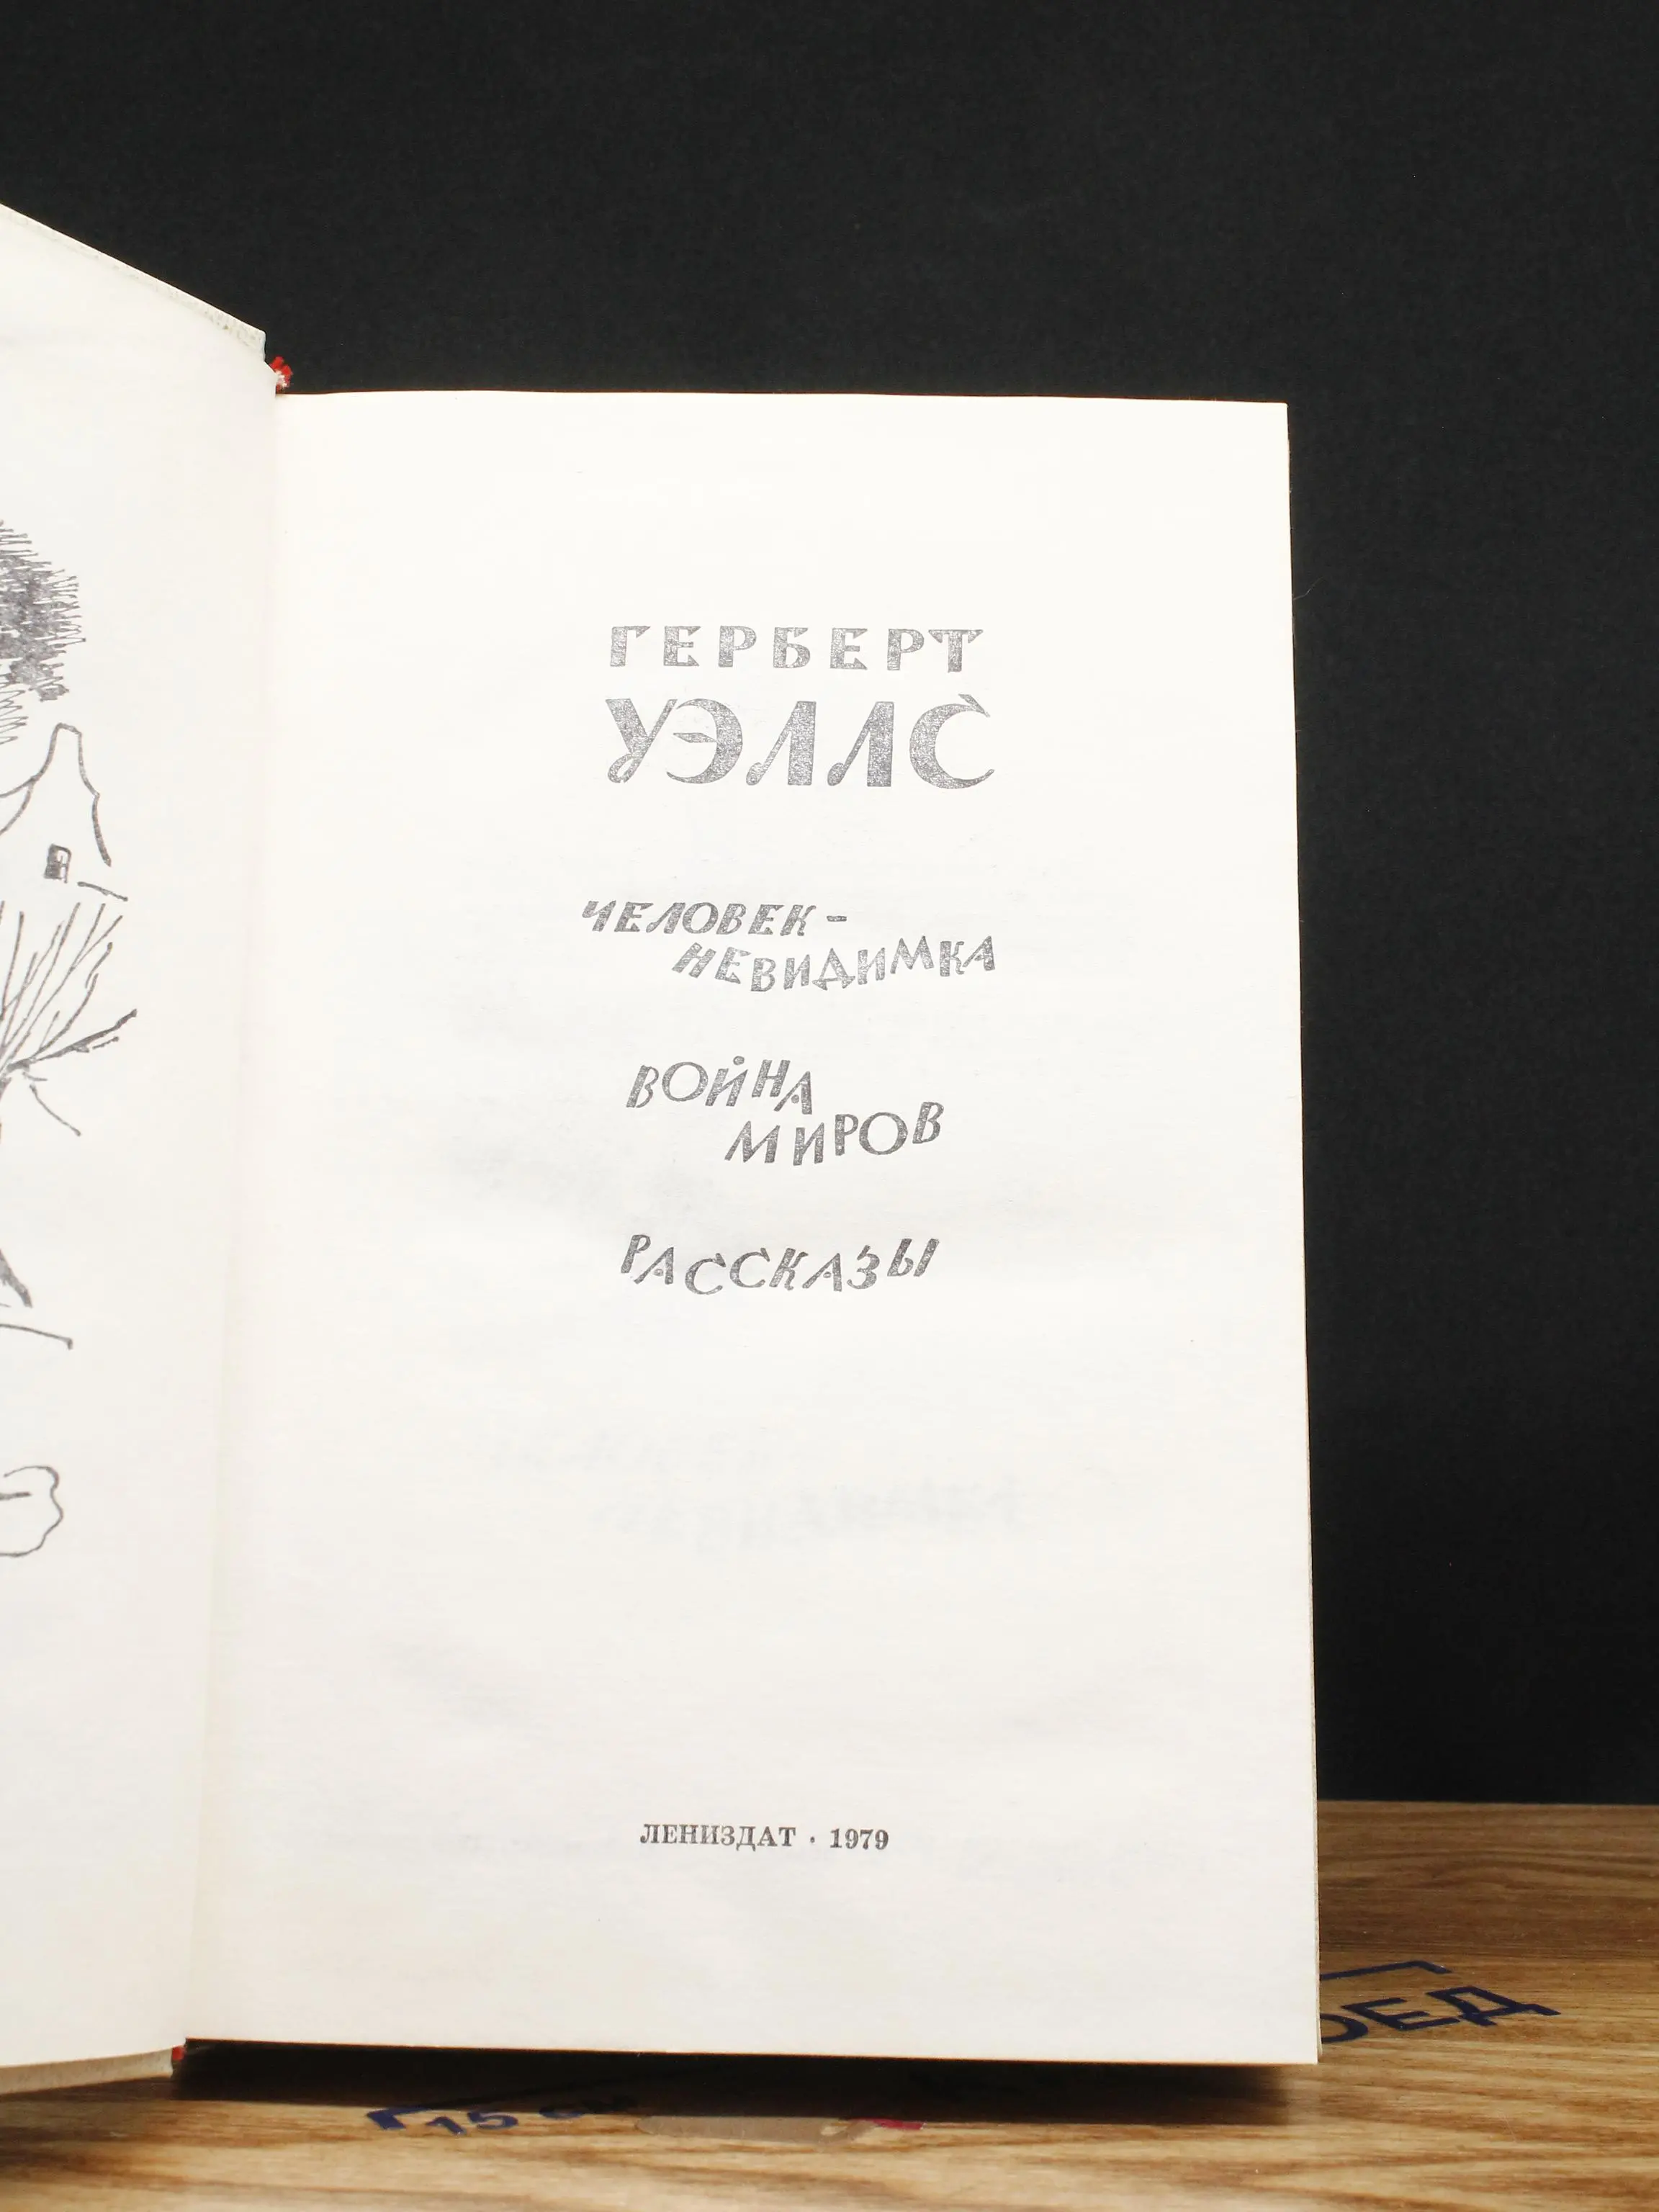 ГЕРБЕРТ
УЭЛЛС
ЧЕЛОВЕК-
НЕВИДИМКА
ВОЙНА
МИРОВ
РАССКАЗЫ
ЛЕНИЗДАТ · 1979
15 см